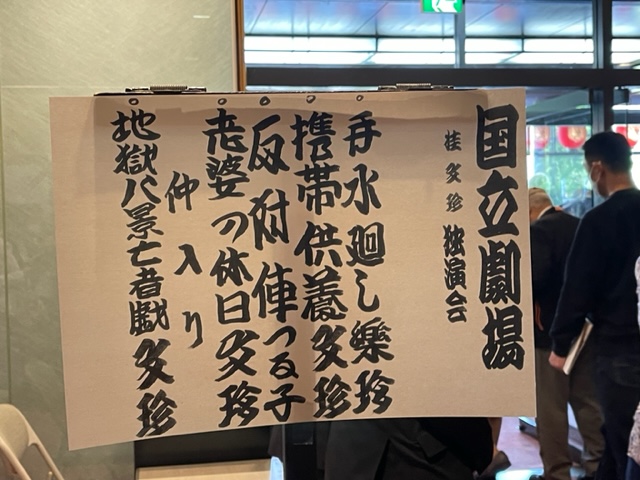 国立劇場
桂文珍 独演会
手水廻し 樂珍
携帯供養 文珍
反対俥 つる子
老婆の休日 文珍
仲入り
地獄八景亡者戯 文珍